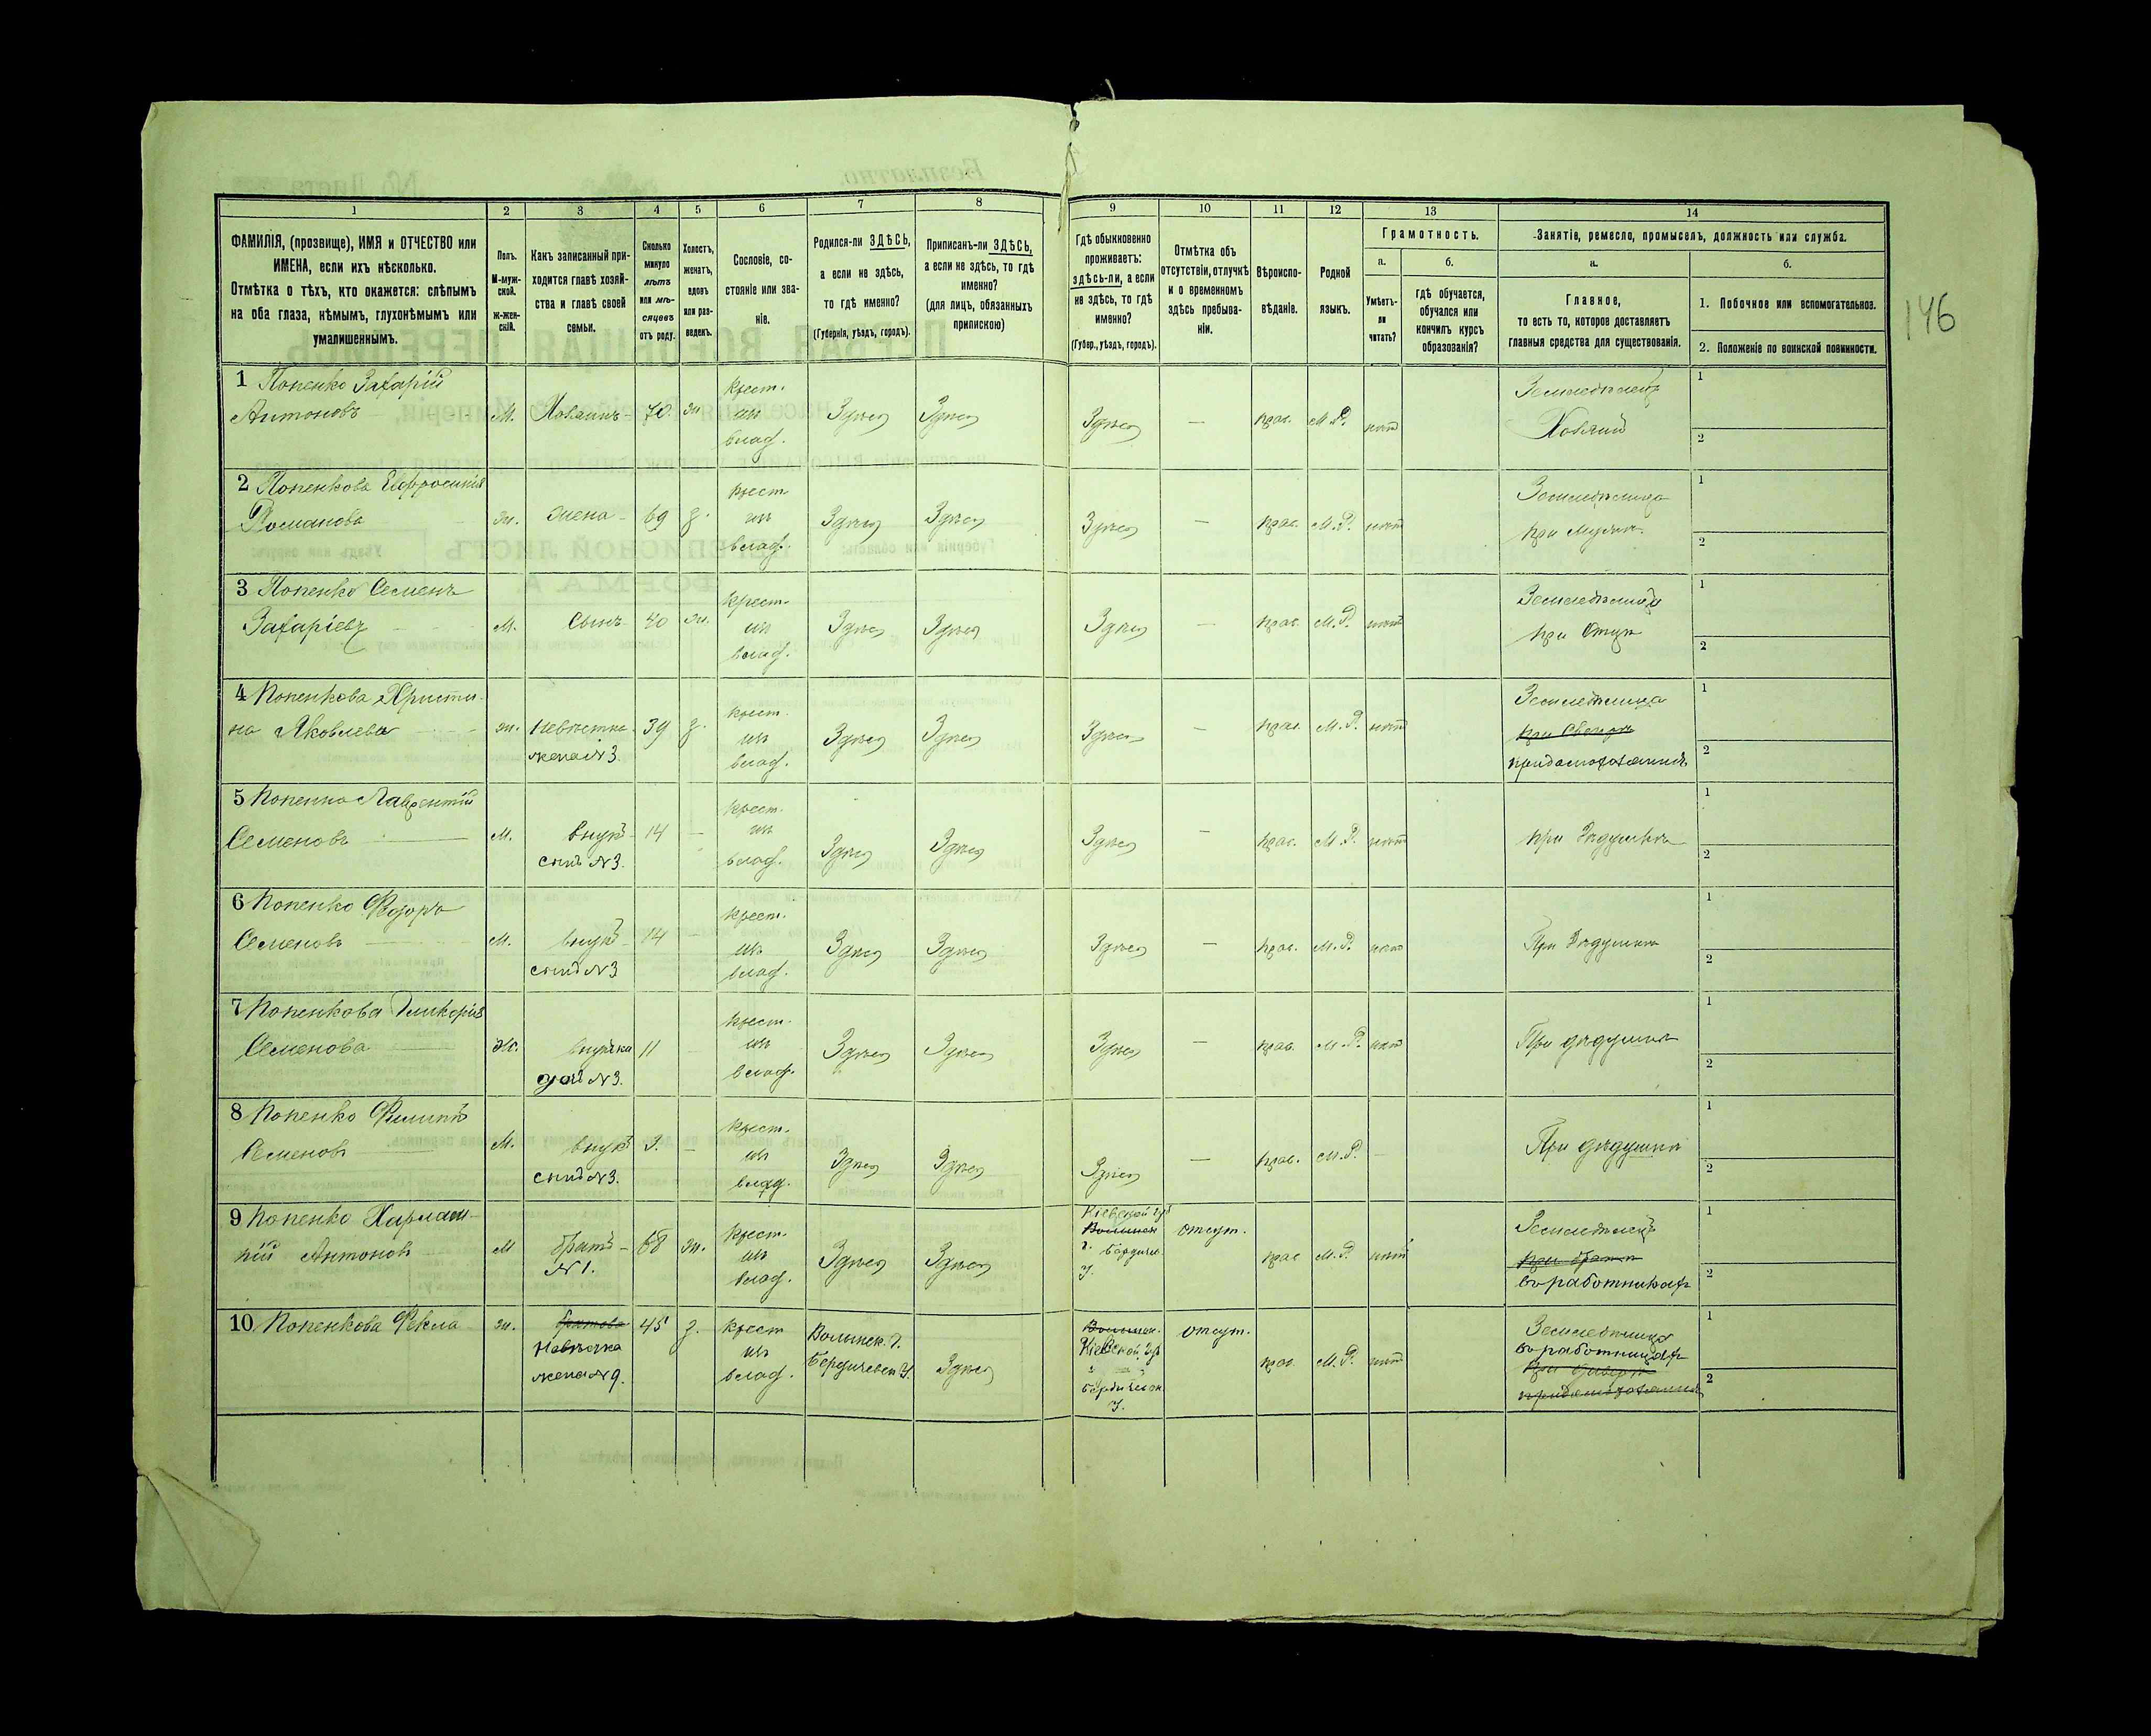 146
1 2 3 4 5 6 7 8 9 10 11 12 13 14
ФАМИЛІЯ, (прозвище), ИМЯ и ОТЧЕСТВО или
ИМЕНА, если ихъ нѣсколько.
Отмѣтка о тѣхъ, кто окажется: слѣпымъ
на оба глаза, нѣмымъ, глухонѣмымъ или
умалишеннымъ.
Полъ.
М-муж-
ской.
ж-жен-
скій.
Какъ записанный при-
ходится главѣ хозяй-
ства и главѣ своей
семьи.
Сколько
минуло
лѣтъ
или мѣ-
сяцевъ
отъ роду.
Холостъ,
женатъ,
вдовъ
или раз-
веденъ.
Сословіе, со-
стояніе или зва-
ніе.
Родился-ли ЗДѢСЬ,
а если не здѣсь,
то гдѣ именно?
(Губернія, уѣздъ, городъ).
Приписанъ-ли ЗДѢСЬ,
а если не здѣсь, то гдѣ
именно?
(для лицъ, обязанныхъ
припискою)
Гдѣ обыкновенно
проживаетъ:
здѣсь-ли, а если
не здѣсь, то гдѣ
именно?
(Губер., уѣздъ, городъ).
Отмѣтка объ
отсутствіи, отлучкѣ
и о временномъ
здѣсь пребыва-
ніи.
Вѣроиспо-
вѣданіе.
Родной
языкъ.
Грамотность.
а.
Умѣетъ-
ли
читать?
б.
гдѣ обучается,
обучался или
кончилъ курсъ
образованія?
Занятіе, ремесло, промыселъ, должность или служба.
а.
Главное,
то есть то, которое доставляетъ
главныя средства для существованія.
б.
1. Побочное или вспомогательное.
2. Положеніе по воинской повинности.
1 Попенко Захарій
Антоновъ
М. Хозяинъ 70 ж.
Крест.
изъ
влад.
Здѣсь Здѣсь Здѣсь — прав. М.Р. нѣтъ
Земледѣлецъ
Хозяинъ
1
2
2 Попенкова Евфросинія
Романова
ж. жена 69 з.
Крест
изъ
влад.
Здѣсь Здѣсь Здѣсь — прав. М.Р. нѣтъ
Земледѣлица
при мужѣ
1
2
3 Попенко Семенъ
Захаріевъ
М. Сынъ 40 ж.
Крест.
изъ
влад.
Здѣсь Здѣсь Здѣсь — прав. М.Р. нѣтъ
при Отцѣ
1
2
4 Попенкова Христи-
на Яковлева
ж. невѣстка 39 з.
жена №3.
Крест.
изъ
влад.
Здѣсь Здѣсь Здѣсь — прав. М.Р. нѣтъ
Земледѣлица
1
2
5 Попенко Лаврентій
Семеновъ
М. внукъ 14 —
сынъ №3.
Крест.
изъ
влад.
Здѣсь Здѣсь Здѣсь — прав. М.Р. нѣтъ
при дѣдушкѣ
1
2
6 Попенко Ѳедоръ
Семеновъ
М. внукъ 14 —
сынъ №3
Крест.
изъ
влад.
Здѣсь Здѣсь Здѣсь — прав. М.Р. нѣтъ
При дѣдушкѣ
1
2
7 Попенкова Гликерія
Семенова
Ж. внучка 11
дочь №3.
Крест.
изъ
влад.
Здѣсь Здѣсь Здѣсь — прав. М.Р. нѣтъ
При дѣдушкѣ
1
2
8 Попенко Филиппъ
Семеновъ
М. внукъ 3. —
сынъ №3.
Крест.
изъ
влад.
Здѣсь Здѣсь Здѣсь — прав. М.Р. —
При дѣдушкѣ
1
2
9 Попенко Харлам-
пій Антоновъ
М братъ 68 ж.
№1.
Крест.
изъ
влад.
Здѣсь Здѣсь
Кіевской Губ
Волынск
Г. Бердичев.
У.
отсут. прав М.Р. нѣтъ
Земледѣлецъ
при братѣ
въ работникахъ
1
2
10 Попенкова Ѳекла
ж. братова 45 з.
Невѣстка
жена №9.
Крест
изъ
влад.
Волынск. Г.
Бердичевск У.
Здѣсь
Волынск.
Кіевской Губ
Бердичевск
У.
отсут. прав. М.Р. нѣтъ
Земледѣлица
въ работницахъ
1
2